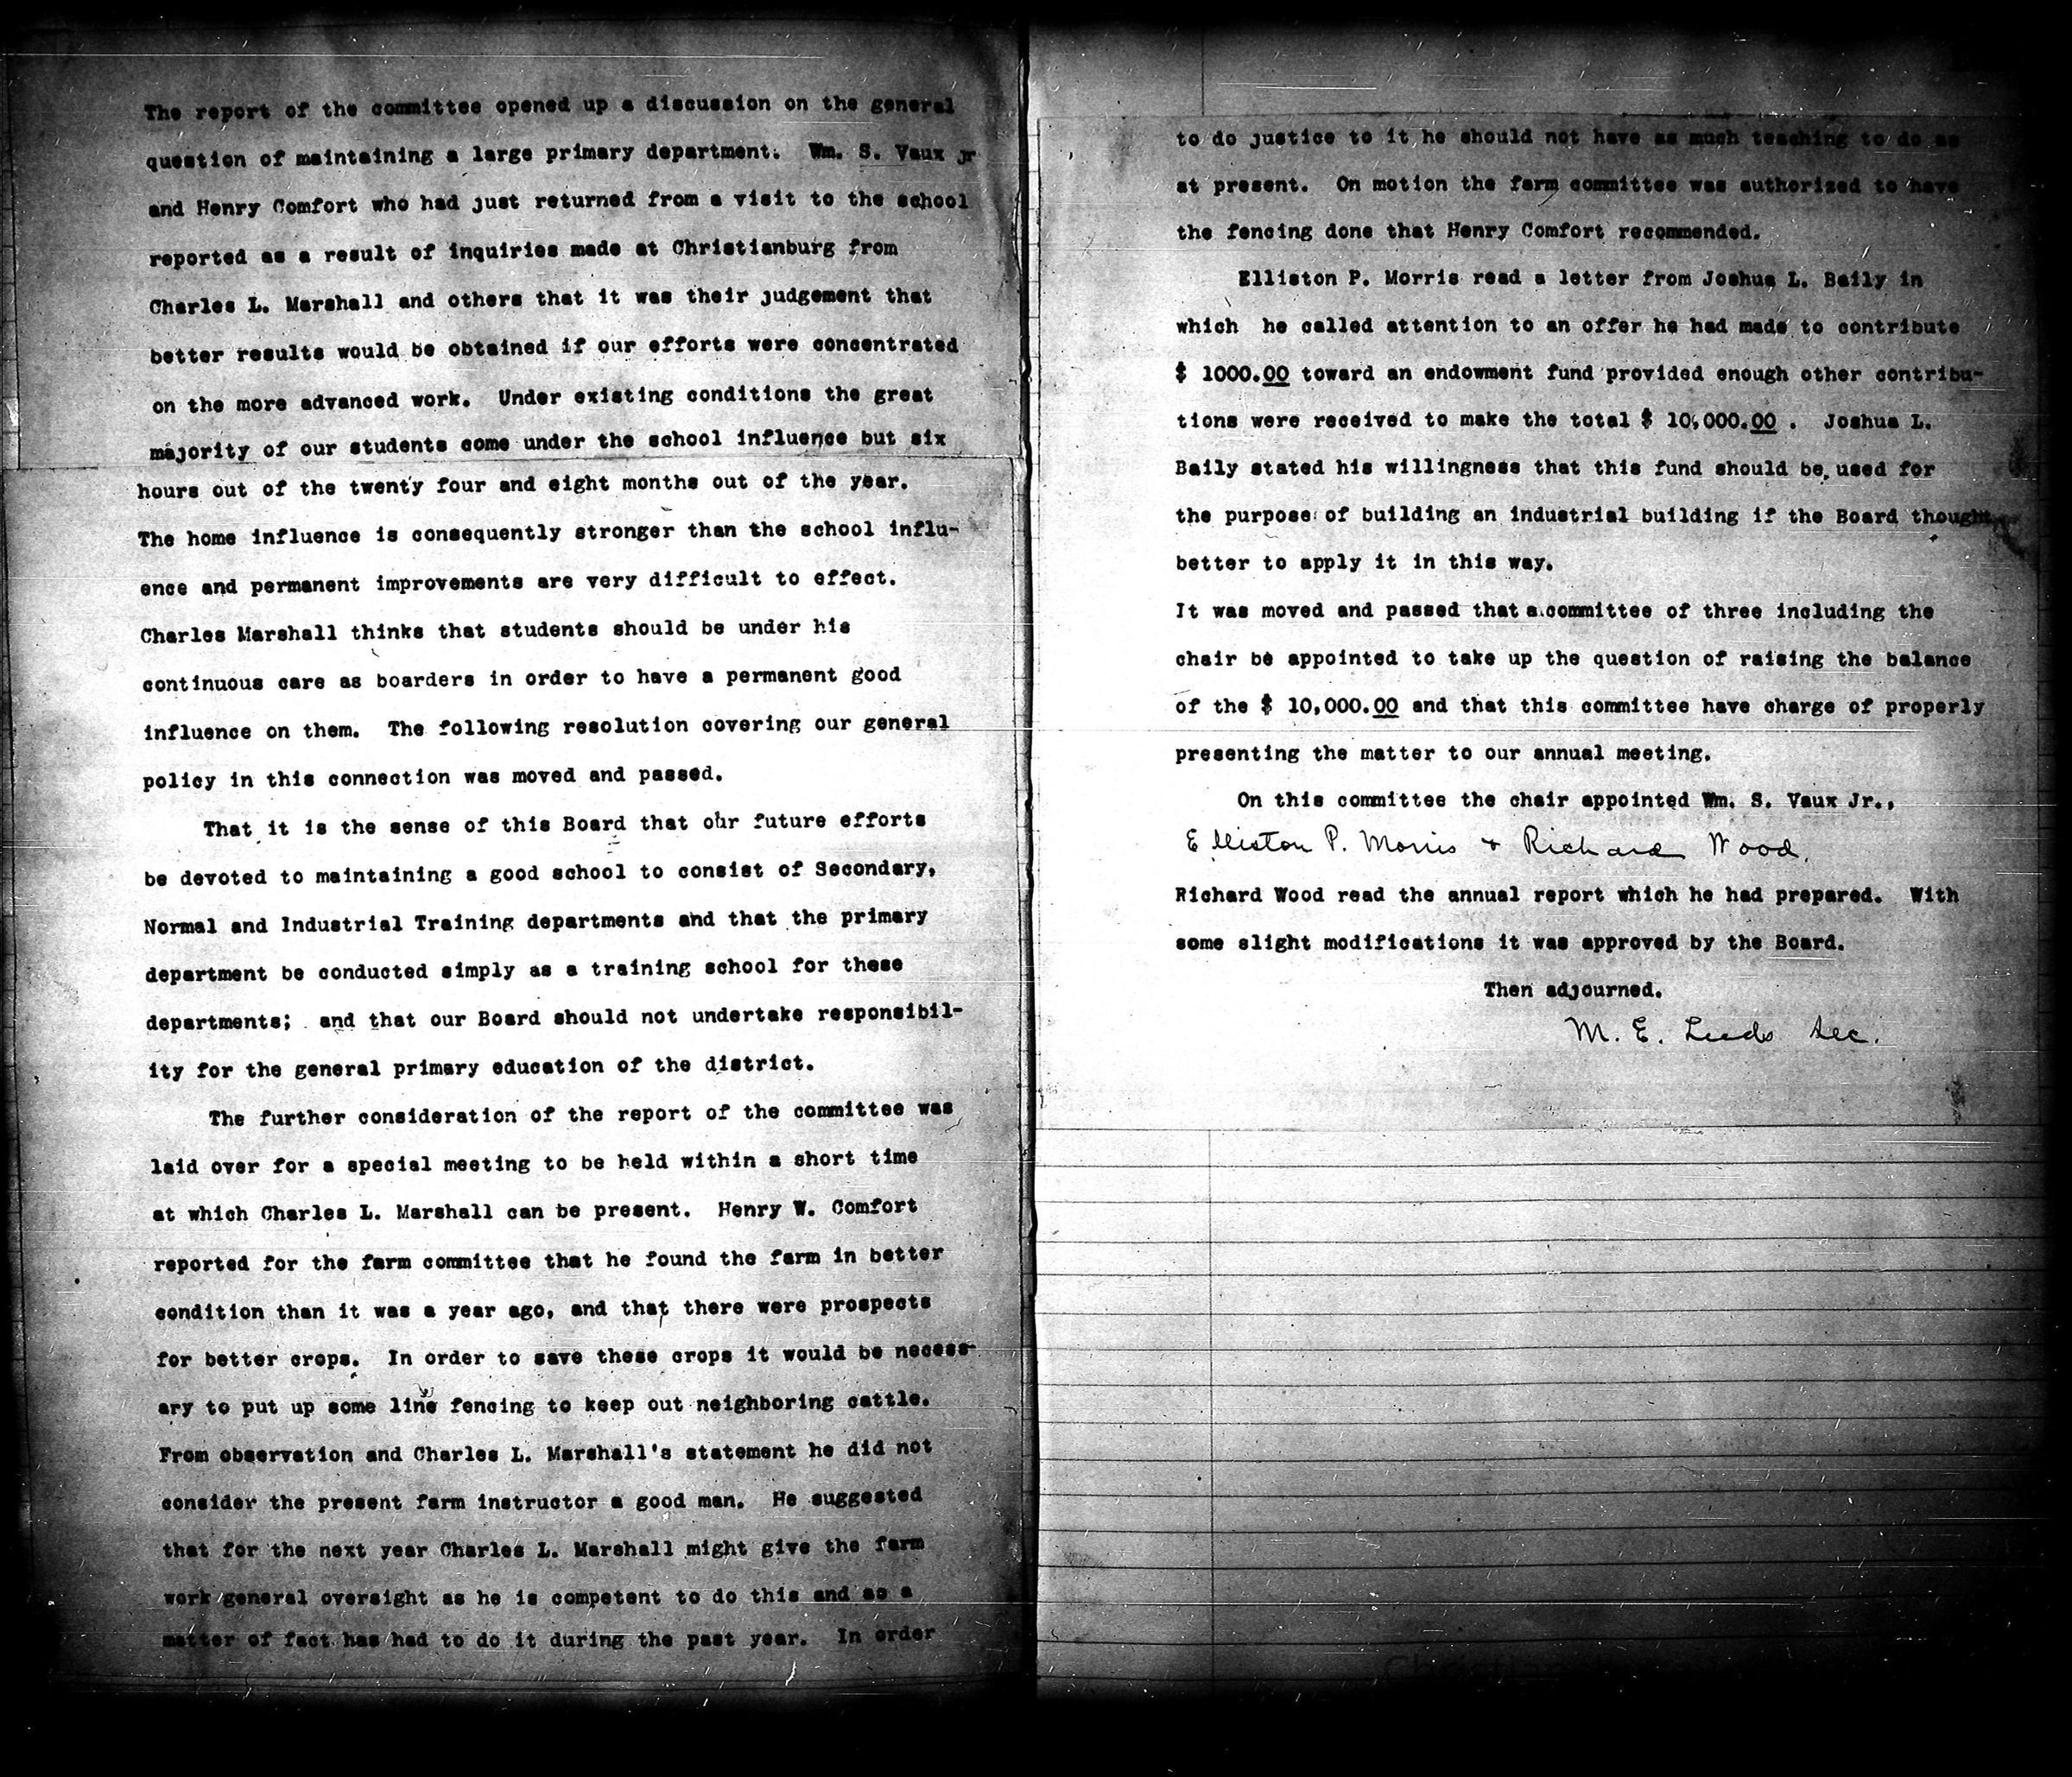 The report of the committee opened up a discussion on the general
question of maintaining a large primary department. Wm. S. Vaux jr
and Henry Comfort who had just returned from a visit to the school
reported as a result of inquiries made at Christianburg from
Charles L. Marshall and others that it was their judgement that
better results would be obtained if our efforts were concentrated
on the more advanced work. Under existing conditions the great
majority of our students come under the school influence but six
hours out of the twenty four and eight months out of the year.
The home influence is consequently stronger than the school influ-
ence and permanent improvements are very difficult to effect.
Charles Marshall thinks that students should be under his
continuous care as boarders in order to have a permanent good
influence on them. The following resolution covering our general
policy in this connection was moved and passed.
That it is the sense of this Board that our future efforts
be devoted to maintaining a good school to consist of Secondary,
Normal and Industrial Training departments and that the primary
department be conducted simply as a training school for these
departments; and that our Board should not undertake responsibil-
ity for the general primary education of the district.
The further consideration of the report of the committee was
laid over for a special meeting to be held within a short time
at which Charles L. Marshall can be present. Henry W. Comfort
reported for the farm committee that he found the farm in better
condition than it was a year ago, and that there were prospects
for better crops. In order to save these crops it would be necess-
ary to put up some line fencing to keep out neighboring cattle.
From observation and Charles L. Marshall's statement he did not
consider the present farm instructor a good man. He suggested
that for the next year Charles L. Marshall might give the farm
work general oversight as he is competent to do this and as a
matter of fact has had to do it during the past year. In order
to do justice to it he should not have as much teaching to do as
at present. On motion the farm committee was authorized to have
the fencing done that Henry Comfort recommended.
Elliston P. Morris read a letter from Joshua L. Baily in
which he called attention to an offer he had made to contribute
$ 1000.00 toward an endowment fund provided enough other contribu-
tions were received to make the total $ 10,000.00 . Joshua L.
Baily stated his willingness that this fund should be used for
the purpose of building an industrial building if the Board thought
better to apply it in this way.
It was moved and passed that a committee of three including the
chair be appointed to take up the question of raising the balance
of the $ 10,000.00 and that this committee have charge of properly
presenting the matter to our annual meeting.
On this committee the chair appointed Wm. S. Vaux Jr.,
Elliston P. Morris + Richard Wood.
Richard Wood read the annual report which he had prepared. With
some slight modifications it was approved by the Board.
Then adjourned.
M. E. Leeds Sec.